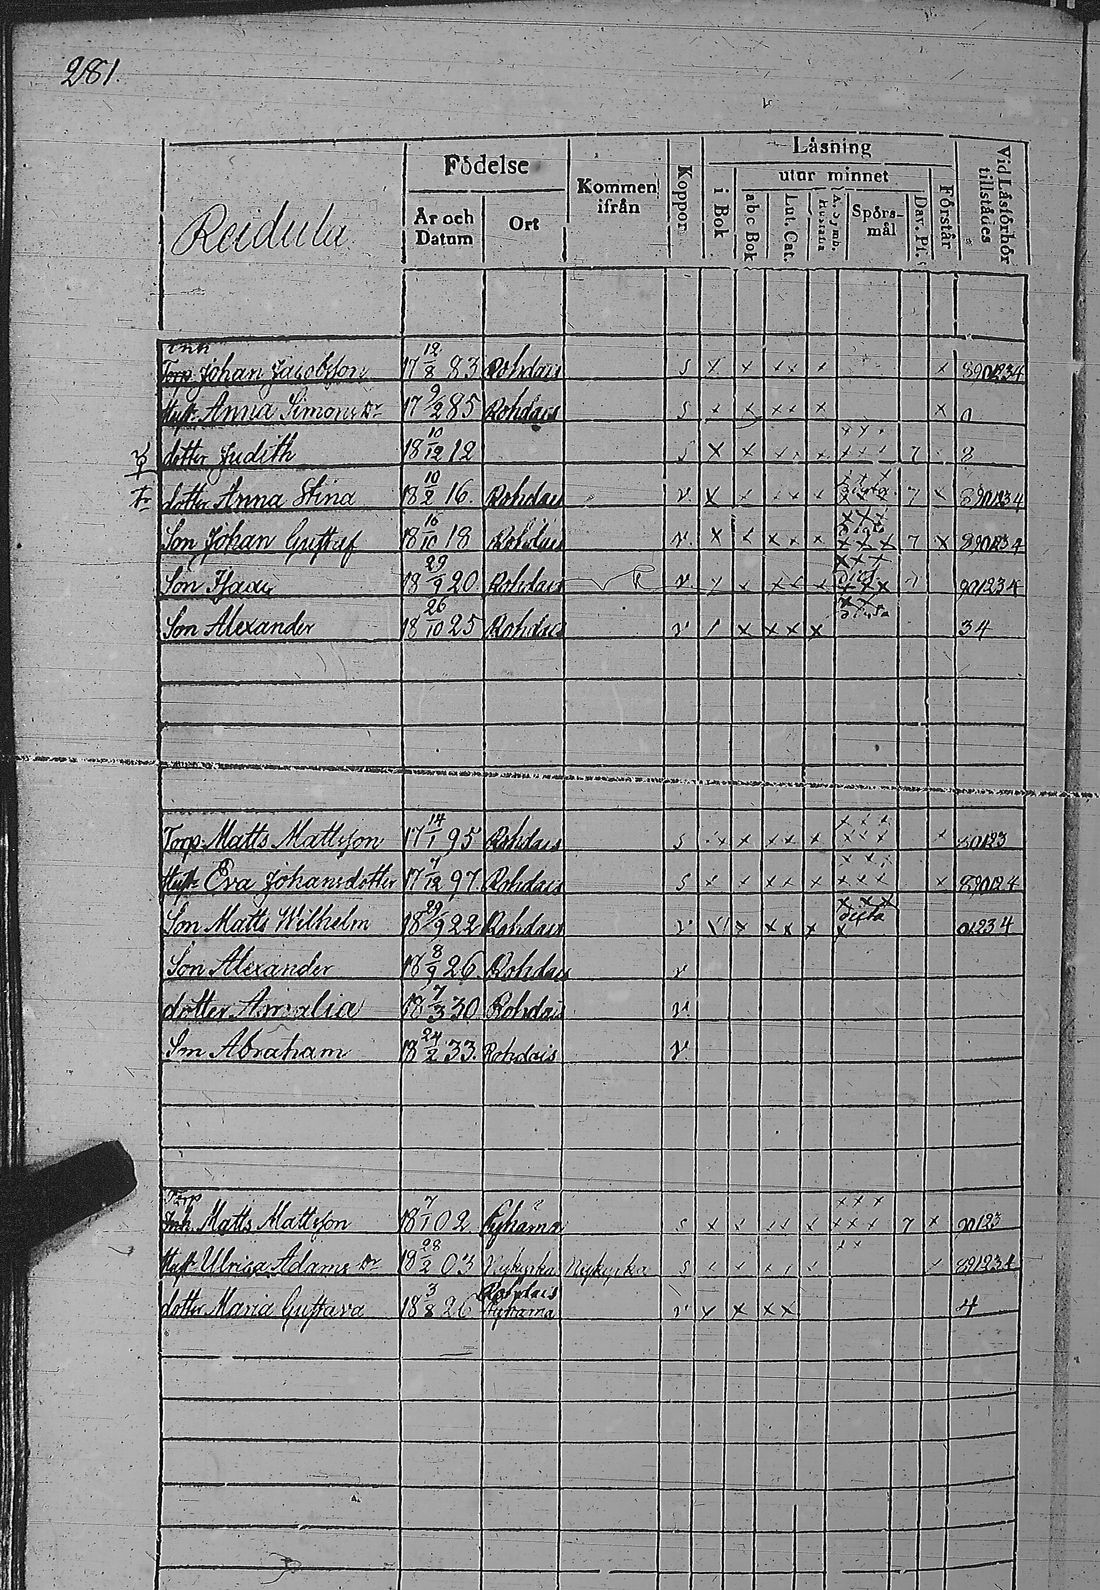 281.
Födelse
Kommen ifrån
Koppor
Läsning
utur minnet
i Bok
abc Bok
Lut. Cat.
Spörs-mål
Dav. Ps.
Förstår
Vid Läsförhör tillstädes
År och Datum
Ort
Inh
Torp Johan Jacobsson 17 12/8 83 Rohdais s x x x x x x x 8901234
Hust: Anna Simons Dr 17 9/2 85 Rohdais s x x x x x x 0
dotter Judith 18 10/12 12 s x x 7 8
dotter Anna Stina 18 10/2 16 Rohdais v x x 7 x 8901234
Son Johan Gustaf 18 16/10 18 Rohdais v x x x x x 7 x 8901234
Son Isaac 18 29/9 20 Rohdais v 901234
Son Alexander 18 26/10 25 Rohdais v / x x x x 34
Torp. Matts Mattsson 17 14/1 95 Rohdais s x x x x x x x x x 80123
Hust: Eva Johansdotter 17 7/12 97 Rohdais s x x x x x x x x x 89012 4
Son Matts Wilhelm 18 29/9 22 Rohdais v x x x x x dicta x 01234
Son Alexander 18 8/9 26 Rohdais v
dotter Amalia 18 7/3 30 Rohdais v
Son Abraham 18 24/2 33 Rohdais v
Torp
Inh. Matts Mattsson 18 7/1 02 s x x x x x x x x 7 x 90123
Hust: Ulrica Adams Dr 18 28/2 03 Nykyrka Nykyrka s 891234
Rohdais
dotter Maria Gustava 18 3/8 26 v x x x x 4